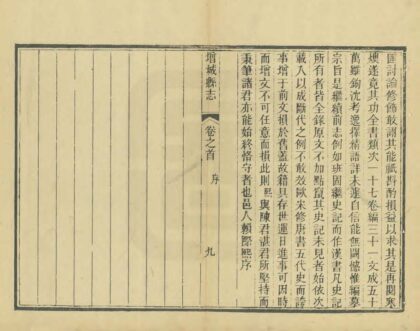 因討論修飾敢謂其能祗斟酌損益以求其是再閱寒
燠遂竟其功全書類次一十七卷編三十一文成五十
萬雖鉤沈考逸擇精語詳未遽自信能無闕憾惟編摹
宗旨是繼續前志例如班固繼史記而作漢書凡史記
所有者皆全錄原文不加點竄其史記未見者始依次
載入以成斷代之例不敢效歐宋修唐書五代史而誇
事增于前文損於舊蓋故籍具存世運日進事可因時
而增文不可任意而損此則熙與陳君湛君所堅持而
秉筆諸君亦能始終恪守者也邑人賴際熙序
增城縣志 卷之首 序 九